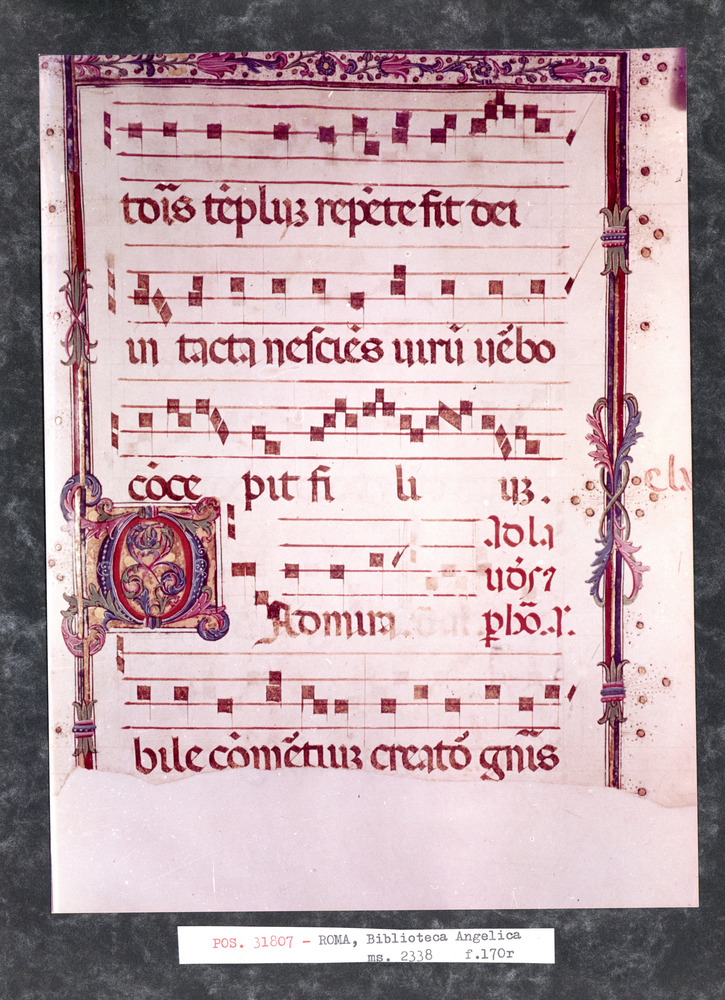 toīs tēpluꝫ repēte fit dei
in tacta nesciēs uirū uēbo
cōce pit fi li uꝫ.
Ad la
udes
O Admira
bile cōmētiuꝫ creatō gn̄is
POS. 31807 - ROMA, Biblioteca Angelica
ms. 2338 f.170r